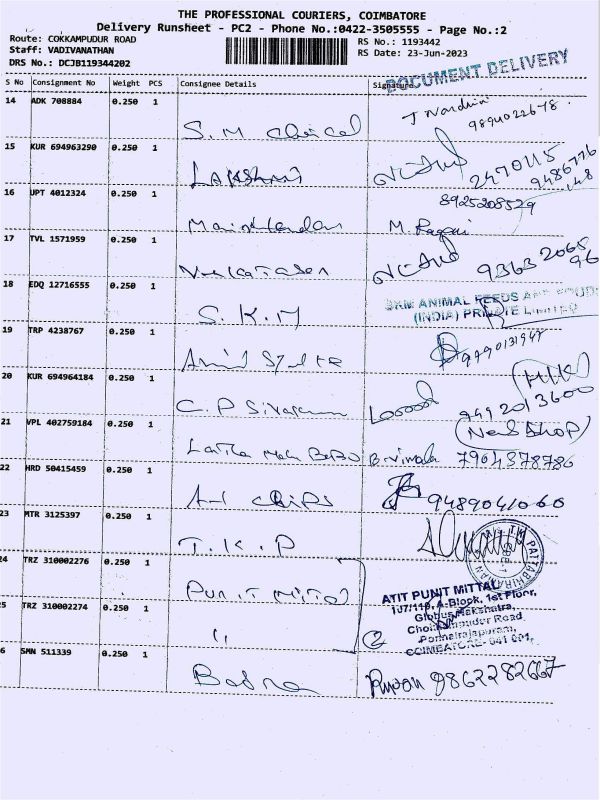 THE PROFESSIONAL COURIERS, COIMBATORE
Delivery Runsheet - PC2 - Phone No.:0422-3505555 - Page No.:2
Route: COKKAMPUDUR ROAD
Staff: VADIVANATHAN
DRS No.: DCJB119344202
RS No.: 1193442
RS Date: 23-Jun-2023
DOCUMENT DELIVERY
S No Consignment No Weight PCS Consignee Details Signature
14 ADK 708884 0.250 1
S. M
9894022678
15 KUR 694963290 0.250 1
Lakshmi
2470115
9486776
148
16 UPT 4012324 0.250 1
8925208529
M.
17 TVL 1571959 0.250 1
Venkatesan
93632065
96
18 EDQ 12716555 0.250 1
S. K. M
SKM ANIMAL FEEDS AND FOODS
(INDIA) PRIVATE LIMITED
19 TRP 4238767 0.250 1
20 KUR 694964184 0.250 1
C. P Sivaraman
9442013600
21 VPL 402759184 0.250 1
(Near Shop)
B. Vimala 7904378786
22 HRD 50415459 0.250 1
chips
9489041060
23 MTR 3125397 0.250 1
T. K. P
PATTABHIRAMAN
24 TRZ 310002276 0.250 1
Punit Mittal
ATIT PUNIT MITTAL
107/110, A-Block, 1st Floor,
25 TRZ 310002274 0.250 1
"
2
Ponnairajapuram,
COIMBATORE - 641 001.
6 SMN 511339 0.250 1
9862282667